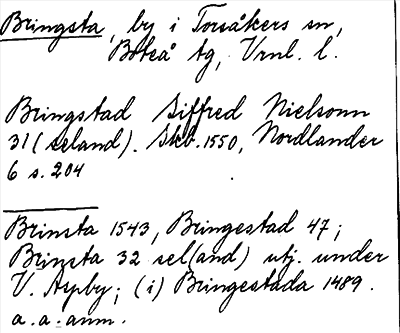 Bringsta, by i Torsåkers sn,
Boteå tg, Vrnl. l.
Bringstad Siffred Nielsonn
31 (seland). Skb. 1550, Nordlander
6 s. 204
Brinsta 1543, Bringestad 47;
Brinsta 32 sel(and) utj. under
V. Aspby; (i) Bringestada 1489.
a.a. anm.